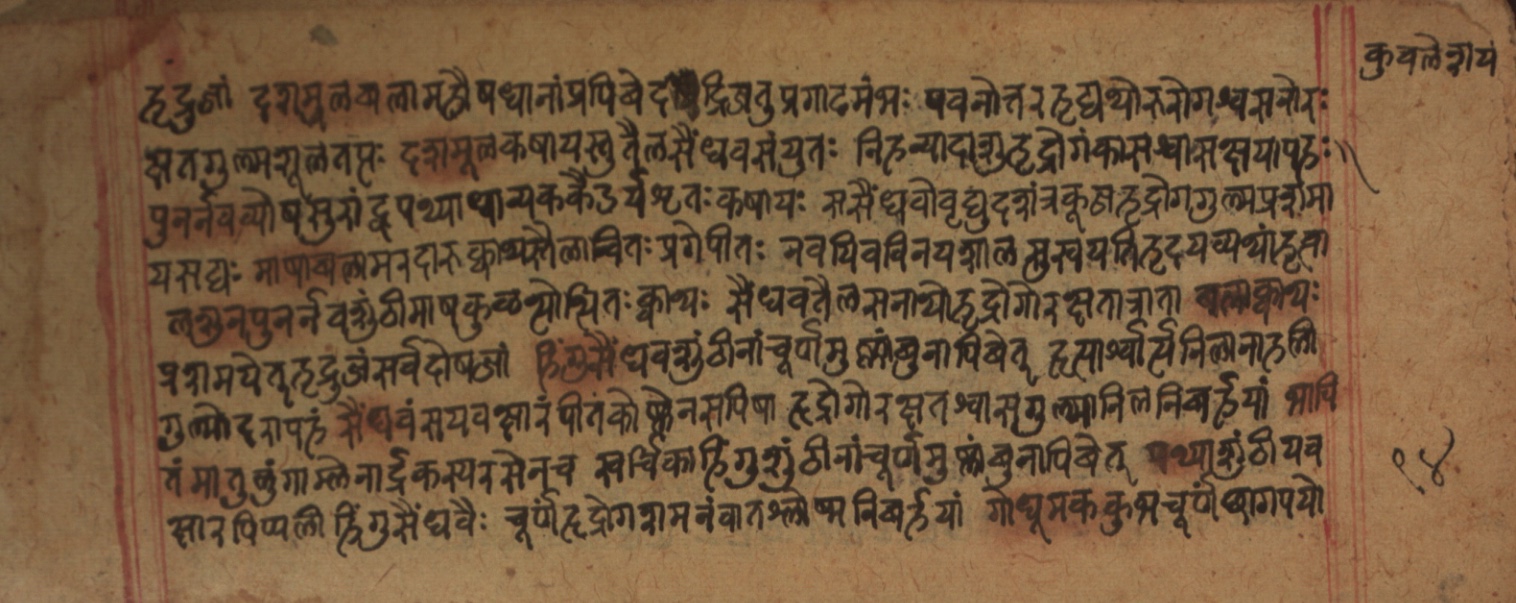 कुवलेशय
हृद्रुजां दशमूलबलामहौषधानां प्रपिबेद द्विजतु प्रगाढमंभः पवनोत्तरहृद्यथोरुरोगश्वसनोरः
क्षतगुल्मशूलतप्तः दशमूलकषायस्तु तैलसैंधवसंयुतः निहन्यादाशु हृद्रोगं कासश्वासक्षयापहः
पुनर्नवव्योष सुरांद्रु पथ्या धान्यककै शृतः कषायः ससैंधवो हृद्रोगगुल्मप्रशमा
य सद्यः माषाबलामरदारुक्वाथस्तैलान्वितः प्रगे पीतः हृदयव्यथां हृत्वा
लशुनपुनर्नवशुंठीमाषकुळत्थोत्थितः क्वाथः सैंधवतैलसनाथो हृद्रोगोरक्षतात्राता बलाक्वाथः
प्रशमयेत् हृद्रुजं सर्वदोषजां हिंगुसैंधवशुंठीनां चूर्णमुष्णांबुना पिबेत् हृत्पार्श्वार्त्यनिलानाहली
गुल्मोदरापहं सैंधवं सयवक्षारं पीतं कोष्णेन सर्पिषा हृद्रोगोरक्षतश्वासगुल्मानिलनिबर्हणं
तं मातुलुंगाम्लेनार्द्रकस्य रसेन च स्वर्चिकाहिंगुशुंठीनां चूर्णमुष्णांबुना पिबेत् पथ्याशुंठीयव
क्षारपिप्पलीहिंगुसैंधवैः चूर्णं हृद्रोगशमनं वातश्लेष्मनिबर्हणं गोधूमककुभचूर्णं छागपयो
१४